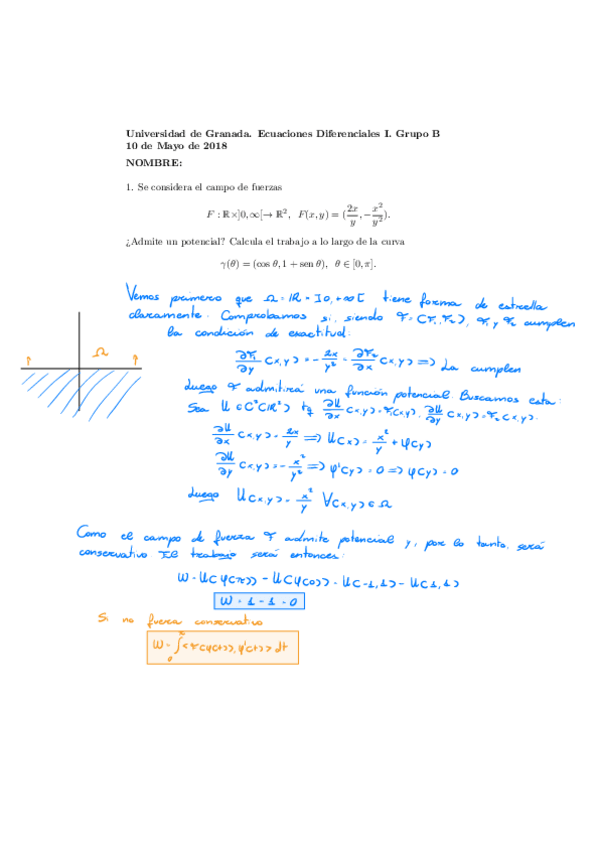 Universidad de Granada. Ecuaciones Diferenciales I. Grupo B
10 de Mayo de 2018
NOMBRE:
1. Se considera el campo de fuerzas
F : ℝ×]0,∞[→ ℝ², F(x, y) = (2x/y, −x²/y²).
¿Admite un potencial? Calcula el trabajo a lo largo de la curva
γ(θ) = (cos θ, 1 + sen θ), θ ∈ [0, π].
Vemos primero que Ω = ℝ × ]0,+∞[ tiene forma de estrella
claramente. Comprobamos si, siendo F = (F₁, F₂), F₁ y F₂ cumplen
la condición de exactitud:
Ω
∂F₁/∂y (x,y) = − 2x/y² = ∂F₂/∂x (x,y) ⟹ La cumplen
Luego F admitirá una función potencial. Buscamos esta:
Sea U ∈ C²(ℝ²) tq ∂U/∂x (x,y) = F₁(x,y), ∂U/∂y (x,y) = F₂(x,y).
∂U/∂x (x,y) = 2x/y ⟹ U(x) = x²/y + φ(y)
∂U/∂y (x,y) = − x²/y² ⟹ φ'(y) = 0 ⟹ φ(y) = 0
Luego U(x,y) = x²/y ∀(x,y) ∈ Ω
Como el campo de fuerza F admite potencial y, por lo tanto, será
conservativo el trabajo será entonces:
W = U(γ(π)) − U(γ(0)) = U(−1,1) − U(1,1)
W = 1 − 1 = 0
Si no fuera conservativo
W = ∫₀^π <F(γ(t)), γ'(t)> dt